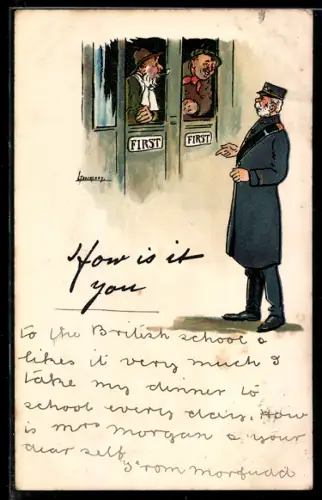 FIRST FIRST
How is it
you
to the British school &
likes it very much I
take my dinner to
school every day. How
is mrs morgan & your
dear self
From morfudd